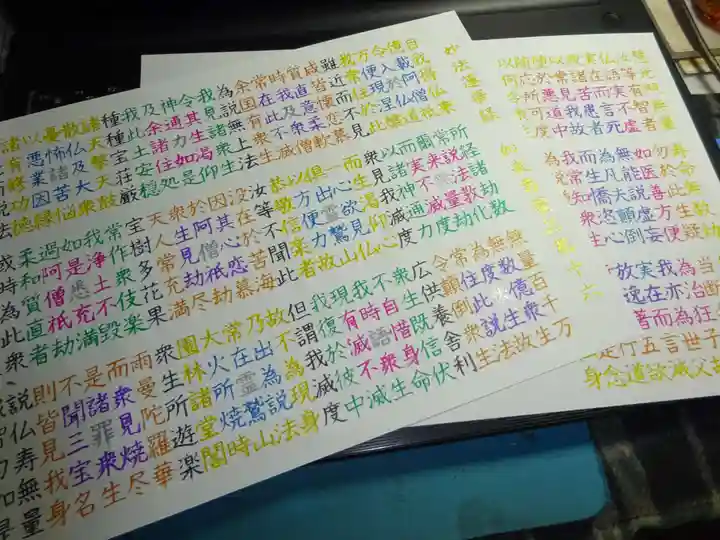 妙法蓮華経
如来寿量品第十六
自我得仏来 所経諸劫数 無量百千万
億載阿僧祇 常説法教化 無数億衆生
令入於仏道 爾来無量劫 為度衆生故
方便現涅槃 而実不滅度 常住此説法
我常住於此 以諸神通力 令顛倒衆生
雖近而不見 衆見我滅度 広供養舎利
咸皆懐恋慕 而生渇仰心 衆生既信伏
質直意柔軟 一心欲見仏 不自惜身命
時我及衆僧 倶出霊鷲山 我時語衆生
常在此不滅 以方便力故 現有滅不滅
余国有衆生 恭敬信楽者 我復於彼中
為説無上法 汝等不聞此 但謂我滅度
我見諸衆生 没在於苦海 故不為現身
令其生渇仰 因其心恋慕 乃出為説法
神通力如是 於阿僧祇劫 常在霊鷲山
及余諸住処 衆生見劫尽 大火所焼時
我此土安穏 天人常充満 園林諸堂閣
種種宝荘厳 宝樹多花果 衆生所遊楽
諸天撃天鼓 常作衆伎楽 雨曼陀羅華
散仏及大衆 我浄土不毀 而衆見焼尽
憂怖諸苦悩 如是悉充満 是諸罪衆生
以悪業因縁 過阿僧祇劫 不聞三宝名
諸有修功徳 柔和質直者 則皆見我身
説法 或時為此衆 説仏寿無量
無量
有智者 勿於此生疑 当断
仏語実不虚 如医善方便 為治狂子
実在而言死 無能説虚妄 我亦為世父
救諸苦患者 為凡夫顛倒 実在而言滅
以常見我故 而生憍恣心 放逸著五欲
堕於悪道中 我常知衆生 行道
随応所可度 為説
以何令衆生